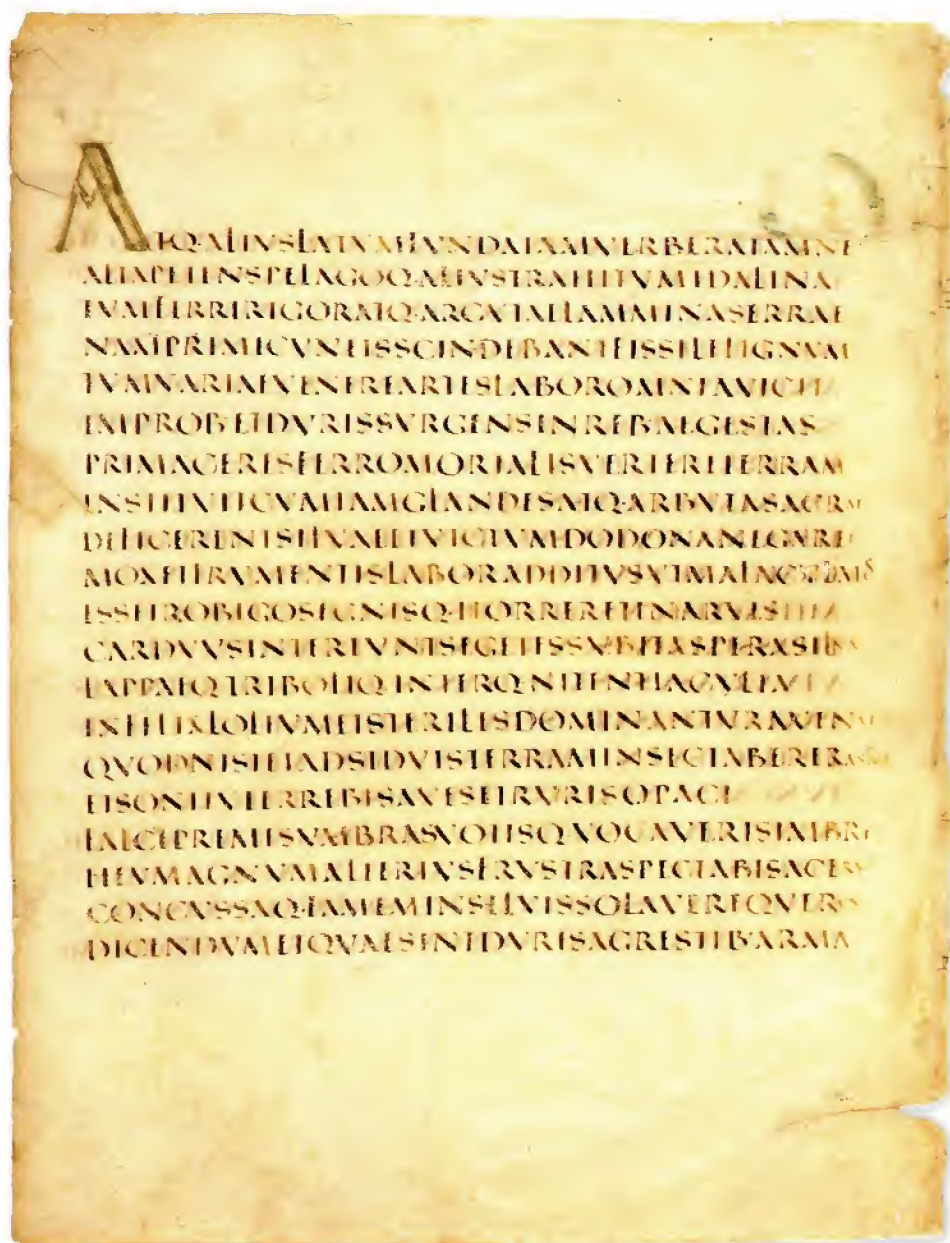 ATQ·ALIVSLATVMFVNDAIAMVERBERATAMNE
ALTAPETENSPELAGOQ·ALIVSTRAHITVMIDALINA
TVMFERRIRIGORATQ·ARGVTAELAMMINASERRAE
NAMPRIMICVNEISSCINDEBANTFISSILELIGNVM
TVMVARIAEVENEREARTESLABOROMNIAVICIT
IMPROB·ETDVRISSVRGENSINREB·AEGESTAS
PRIMACERESFERROMORTALISVERTERETERRAM
INSTITVITCVMIAMGLANDESATQ·ARBVTASACRAE
DEFICERENTSILVAEETVICTVMDODONANEGARET
MOXETFRVMENTISLABORADDITVSVTMALACVLMOS
ESSETROBIGOSEGNISQ·HORRERETINARVIS
CARDVVSINTEREVNTSEGETESSVBITASPERASILVA
LAPPAEQ·TRIBOLIQ·INTERQ·NITENTIACVLTA
INFELIXLOLIVMETSTERILESDOMINANTVRAVENAE
QVODNISIETADSIDVISTERRAMINSECTABERERASTRIS
ETSONITVTERREBISAVESETRVRISOPACI
FALCEPREMISVMBRASVOTISQVOCAVERISIMBREM
HEVMAGNVMALTERIVSFRVSTRASPECTABISACERV
CONCVSSAQ·FAMEMINSILVISSOLAVEREQVERCV
DICENDVMETQVAESINTDVRISAGRESTIB·ARMA